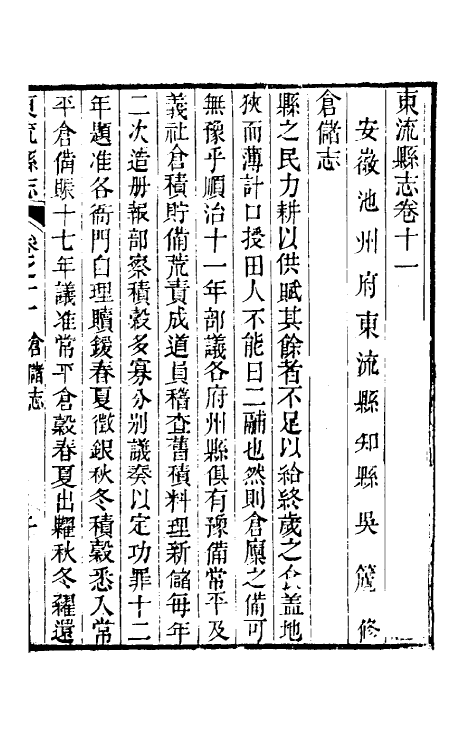 東流縣志卷十一
安徽池州府東流縣知縣吳篪修
倉儲志
縣之民力耕以供賦其餘者不足以給終歲之食盖地
狹而薄計口授田人不能日二鬴也然則倉廩之備可
無豫乎順治十一年部議各府州縣俱有豫備常平及
義社倉積貯備荒責成道員稽查舊積料理新儲每年
二次造册報部察積穀多寡分别議奏以定功罪十二
年題准各衙門自理贖鍰春夏徵銀秋冬積穀悉入常
平倉備賑十七年議准常平倉穀春夏出糶秋冬糴還
東流縣志 卷之十一 倉儲志 一